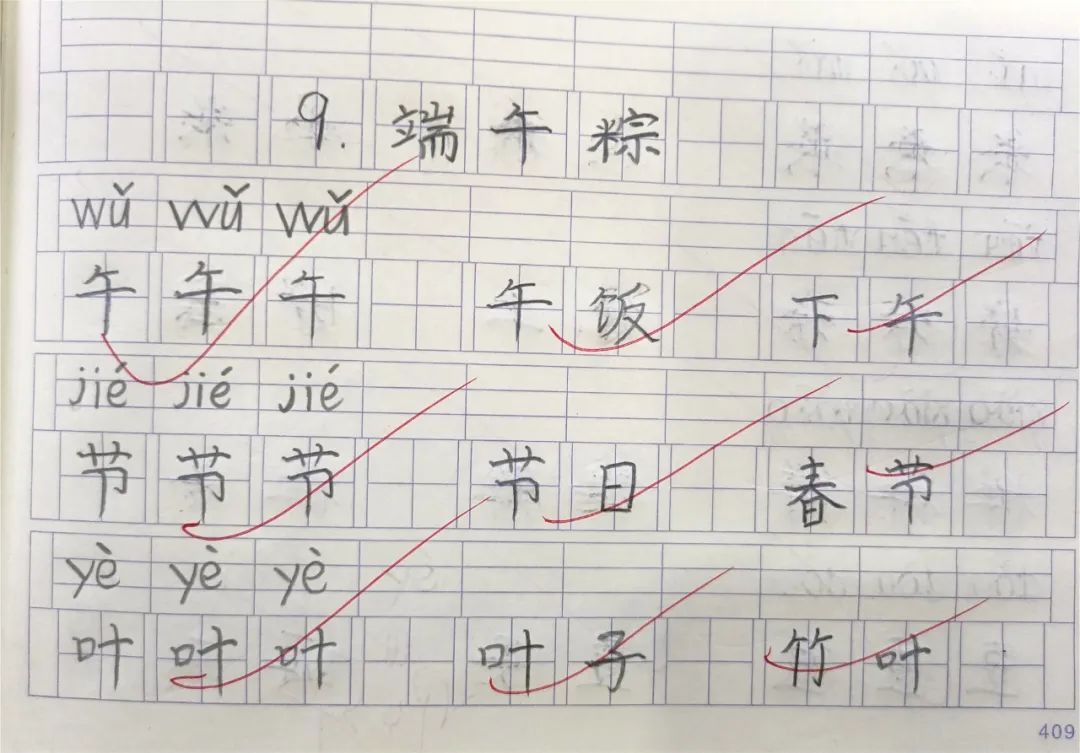 9. 端午粽
wǔ wǔ wǔ
午 午 午 午饭 下午
jié jié jié
节 节 节 节日 春节
yè yè yè
叶 叶 叶 叶子 竹叶
409